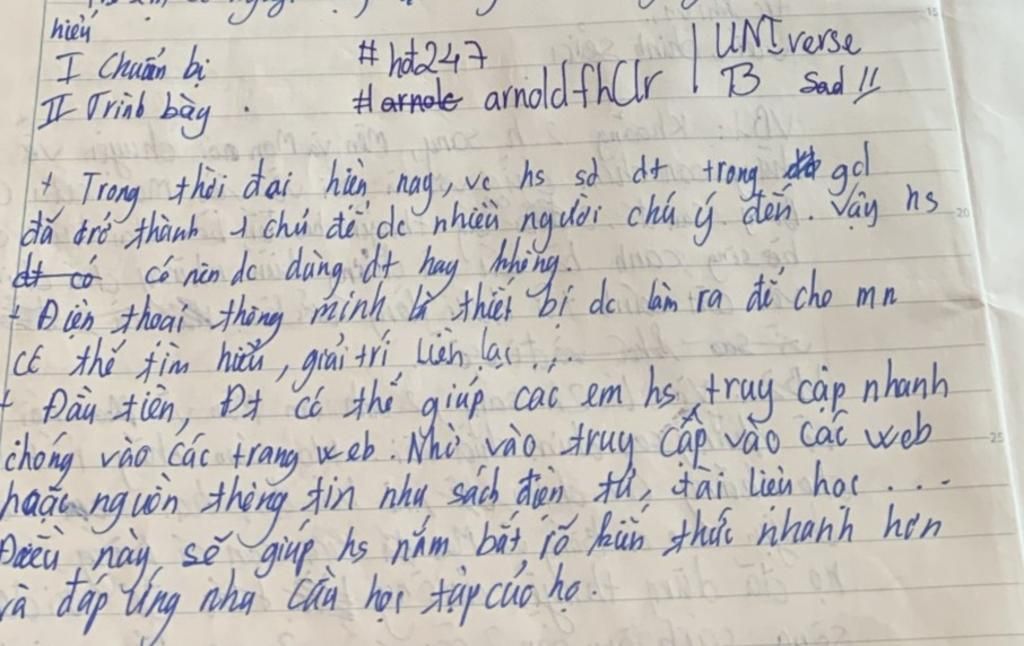 hiểu
I Chuẩn bị
#hot247
UNIverse
II Trình bày .
#arnole arnoldfhClr
B sad !!
+ Trong thời đại hiện nay, vc hs sd dt trong gd
đã trở thành 1 chủ đề dc nhiều người chú ý đến. Vậy hs
dt có có nên dc dùng dt hay không.
+ Điện thoại thông minh là thiết bị dc làm ra để cho mn
có thể tìm hiểu, giải trí, liên lạc,...
+ Đầu tiên, Đt có thể giúp các em hs truy cập nhanh
chóng vào các trang web. Nhờ vào truy cập vào các web
hoặc nguồn thông tin như sách điện tử, tài liệu học ....
Điều này sẽ giúp hs nắm bắt rõ kiến thức nhanh hơn
và đáp ứng nhu cầu học tập của họ.